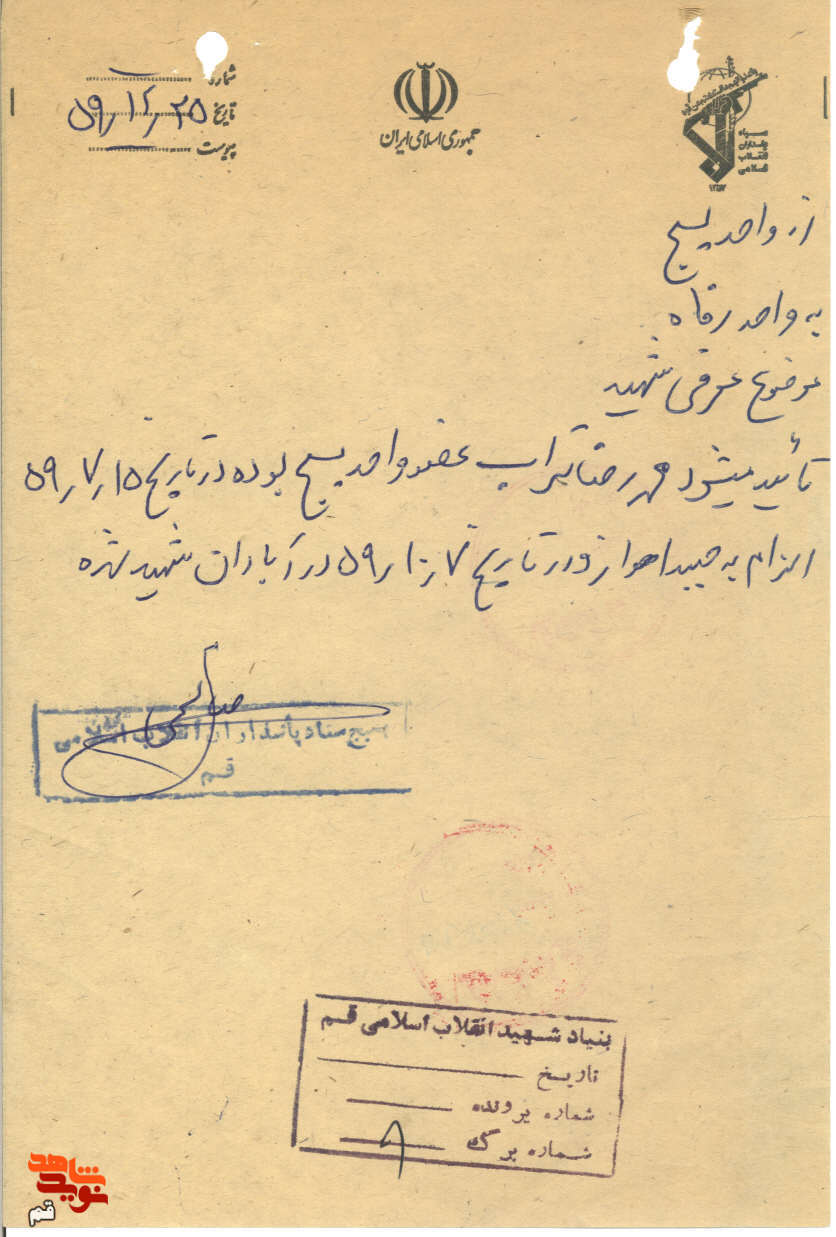 شماره
تاریخ ۵۹/۱۲/۲۵
پیوست
جمهوری اسلامی ایران
سپاه
پاسداران
انقلاب
اسلامی
از واحد بسیج
به واحد رفاه
موضوع معرفی شهید
تأئید میشود محمد رضا تیراب عضو واحد بسیج بوده در تاریخ ۵۹/۷/۱۵
اعزام به جبهه اهواز و در تاریخ ۵۹/۱۰/۷ در آبادان شهید شده
صالحی
بسیج ستاد پاسداران انقلاب اسلامی
قم
بنیاد شهید انقلاب اسلامی قم
تاریخ
شماره پرونده
شماره برگ ۹
نوید شاهد
قم